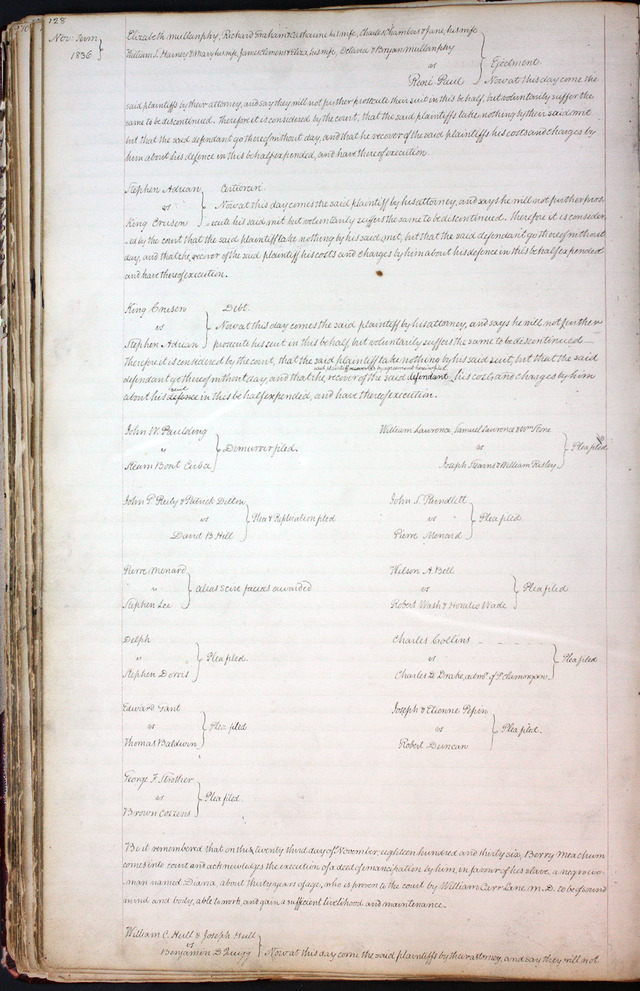 128
Nov: Term
1836
Elizabeth Mullanphy, Richard Graham & Catharine his wife, Charles Chambers & Jane, his wife
William S. Harney & Mary his wife, James Clemens & Eliza, his wife, & Bryan Mullanphy
vs Ejectment
René Paul Now at this day come the
said plaintiffs by their attorney, and say they will not further prosecute their suit in this behalf, but voluntarily suffer the
same to be discontinued. Therefore it is considered by the court, that the said plaintiffs take nothing by their said writ
but that the said defendant go thereof without day, and that he recover of the said plaintiffs his costs and charges by
him about his defence in this behalf expended, and have thereof execution.
Stephen Adrian Certiorari
vs Now at this day comes the said plaintiff by his attorney, and says he will not further pros
King Cruisen ecute his said suit but voluntarily suffers the same to be discontinued. Therefore it is consider
ed by the court that the said plaintiff take nothing by his said suit, but that the said defendant go thereof without
day, and that he recover of the said plaintiff his costs and charges by him about his defence in this behalf expended
and have thereof execution.
King Cruisen Debt.
vs Now at this day comes the said plaintiff by his attorney, and says he will not further
Stephen Adrian prosecute his suit in this behalf but voluntarily suffers the same to be discontinued
Therefore it is considered by the court, that the said plaintiff take nothing by his said suit, but that the said
said plaintiff recover by agreement herein filed
defendant go thereof without day, and that he recover of the said defendant his costs and charges by him
suit
about his defence in this behalf expended, and have thereof execution.
John W. Paulding
vs Demurrer filed.
Steam Boat Cuba
William Lawrence, Samuel Lawrence & Wm Stone
vs Plea filed
Joseph Stearns & William Risley
John P. Reily & Patrick Dillon
vs Plea & Replication filed
David B Hill
John S. Rundlett
vs Plea filed
Pierre Menard
Pierre Menard
vs alias Scire facias awarded
Stephen Lee
Wilson A. Bell
vs Plea filed
Robert Wash & Horatio Wade
Delph
vs Plea filed.
Stephen Dorris
Charles Collins
vs Plea filed
Charles D. Drake, admr. of
Edward Gant
vs Plea filed
Thomas Baldwin
Joseph & Etienne Pepin
vs Plea filed.
Robert Duncan
George F. Strother
vs Plea filed.
Brown Cozzens
Be it remembered that on this twenty third day of November eighteen hundred and thirty six, Berry Meachum
comes into court and acknowledges the execution of a deed of emancipation by him, in favor of his slave, a negro wo-
man named Diana, about thirty years of age, who is proven to the court by William Carr Lane M. D. to be of sound
mind and body, able to work, and gain a sufficient livelihood and maintenance.
William C. Hull & Joseph Hull
vs
Benjamin D. Quigg Now at this day come the said plaintiffs by their attorney, and say they will not